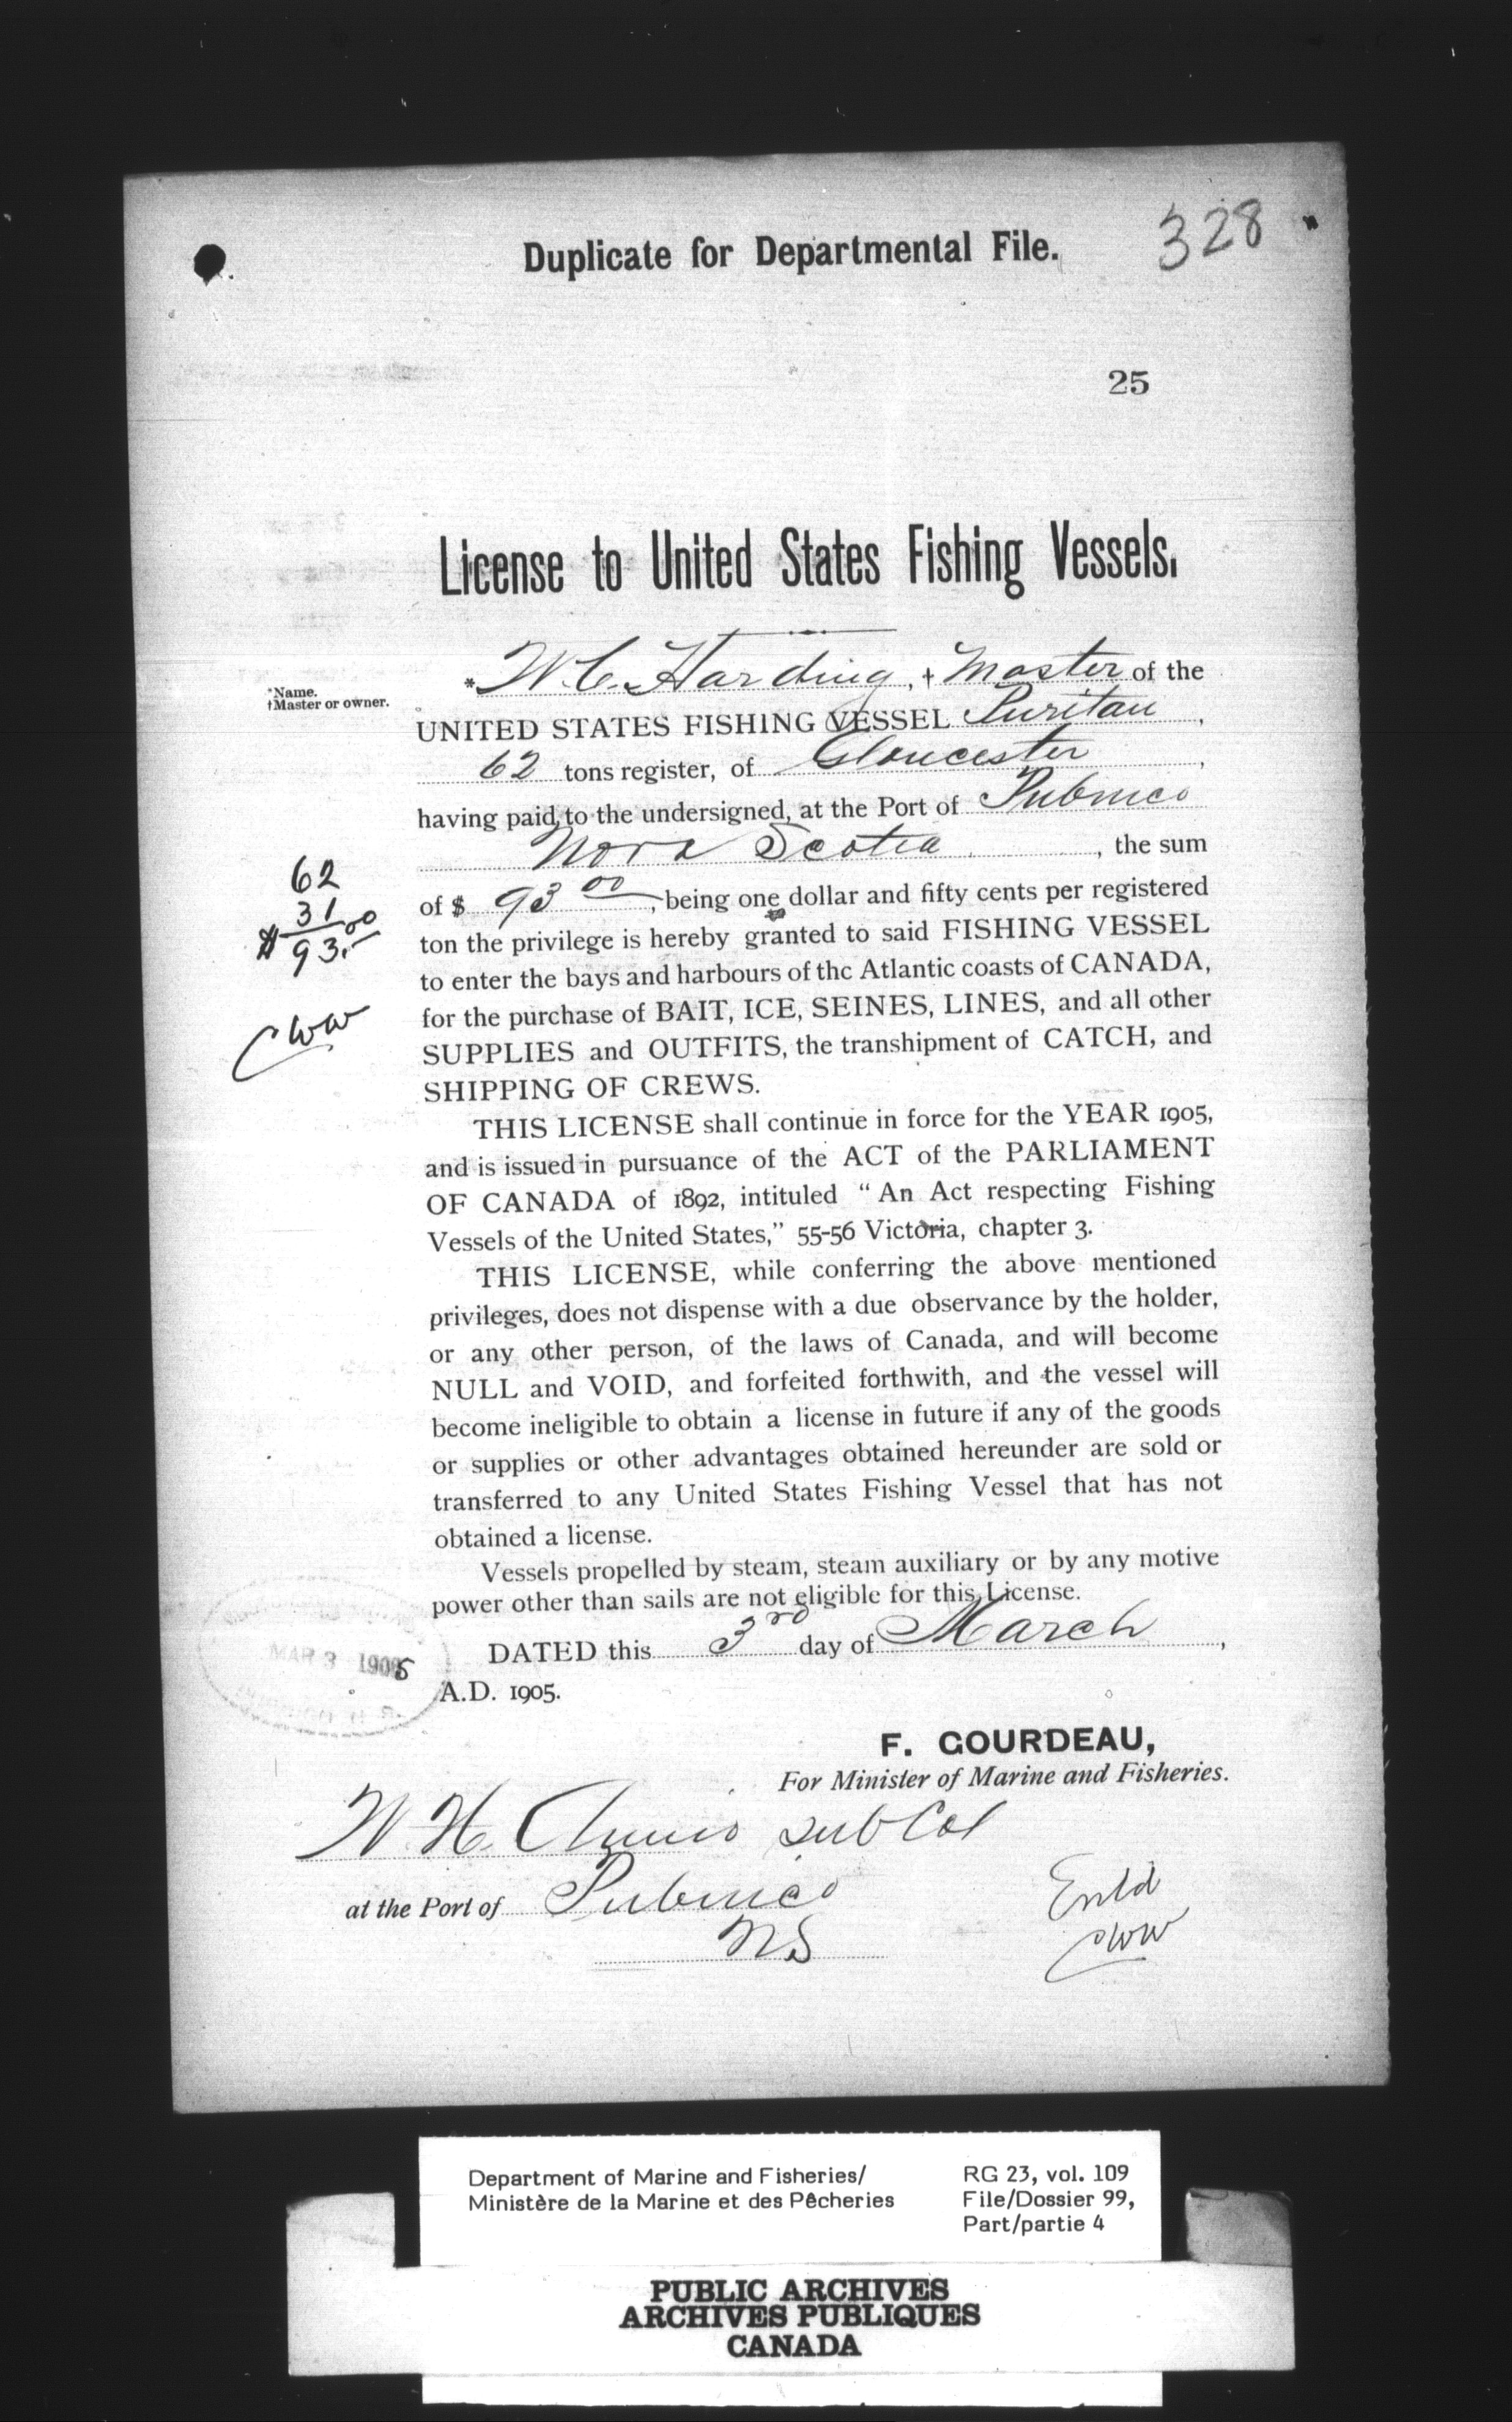 Duplicate for Departmental File.
328
25
License to United States Fishing Vessels.
*Name.
†Master or owner.
* W. C. Harding, † Master of the
UNITED STATES FISHING VESSEL Puritan,
62 tons register, of Gloucester,
having paid to the undersigned, at the Port of Pubnico
Nova Scotia, the sum
of $ 93 00, being one dollar and fifty cents per registered
62
31
$ 93.00
CWW
ton the privilege is hereby granted to said FISHING VESSEL
to enter the bays and harbours of the Atlantic coasts of CANADA,
for the purchase of BAIT, ICE, SEINES, LINES, and all other
SUPPLIES and OUTFITS, the transhipment of CATCH, and
SHIPPING OF CREWS.
THIS LICENSE shall continue in force for the YEAR 1905,
and is issued in pursuance of the ACT of the PARLIAMENT
OF CANADA of 1892, intituled “An Act respecting Fishing
Vessels of the United States,” 55-56 Victoria, chapter 3.
THIS LICENSE, while conferring the above mentioned
privileges, does not dispense with a due observance by the holder,
or any other person, of the laws of Canada, and will become
NULL and VOID, and forfeited forthwith, and the vessel will
become ineligible to obtain a license in future if any of the goods
or supplies or other advantages obtained hereunder are sold or
transferred to any United States Fishing Vessel that has not
obtained a license.
Vessels propelled by steam, steam auxiliary or by any motive
power other than sails are not eligible for this License.
DATED this 3rd day of March,
A.D. 1905.
MAR 3 1905
F. GOURDEAU,
For Minister of Marine and Fisheries.
W. H. sub Col
at the Port of Pubnico
NS
Entd
CWW
Department of Marine and Fisheries/
Ministère de la Marine et des Pêcheries
RG 23, vol. 109
File/Dossier 99,
Part/partie 4
PUBLIC ARCHIVES
ARCHIVES PUBLIQUES
CANADA